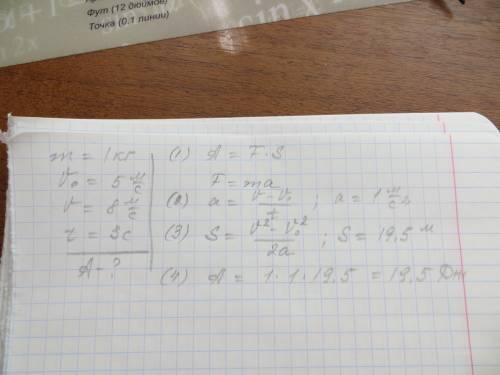 Фут (12 дюймов)
Точка (0,1 линии)
sin x
m = 1 кг
V₀ = 5 м/с
V = 8 м/с
t = 3с
A - ?
(1) A = F·S
F = ma
(2) a = (V - V₀)/t ; a = 1 м/с²
(3) S = (V² - V₀²)/2a ; S = 19,5 м
(4) A = 1·1·19,5 = 19,5 Дж